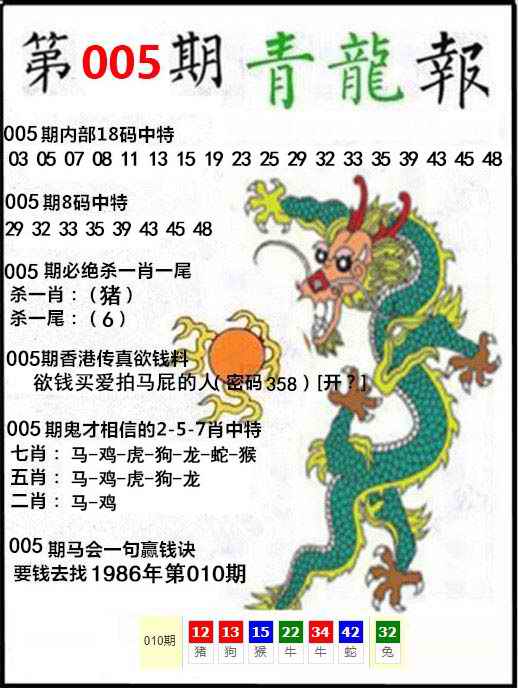 第005期青龍報
005期内部18码中特
03 05 07 08 11 13 15 19 23 25 29 32 33 35 39 43 45 48
005期8码中特
29 32 33 35 39 43 45 48
005 期必绝杀一肖一尾
杀一肖：（猪）
杀一尾：（6）
005期香港传真欲钱料
欲钱买爱拍马屁的人（密码358）[开？]
005期鬼才相信的2-5-7肖中特
七肖：马-鸡-虎-狗-龙-蛇-猴
五肖：马-鸡-虎-狗-龙
二肖：马-鸡
005期马会一句赢钱诀
要钱去找1986年第010期
010期 12 13 15 22 34 42 32
猪 狗 猴 牛 牛 蛇 兔